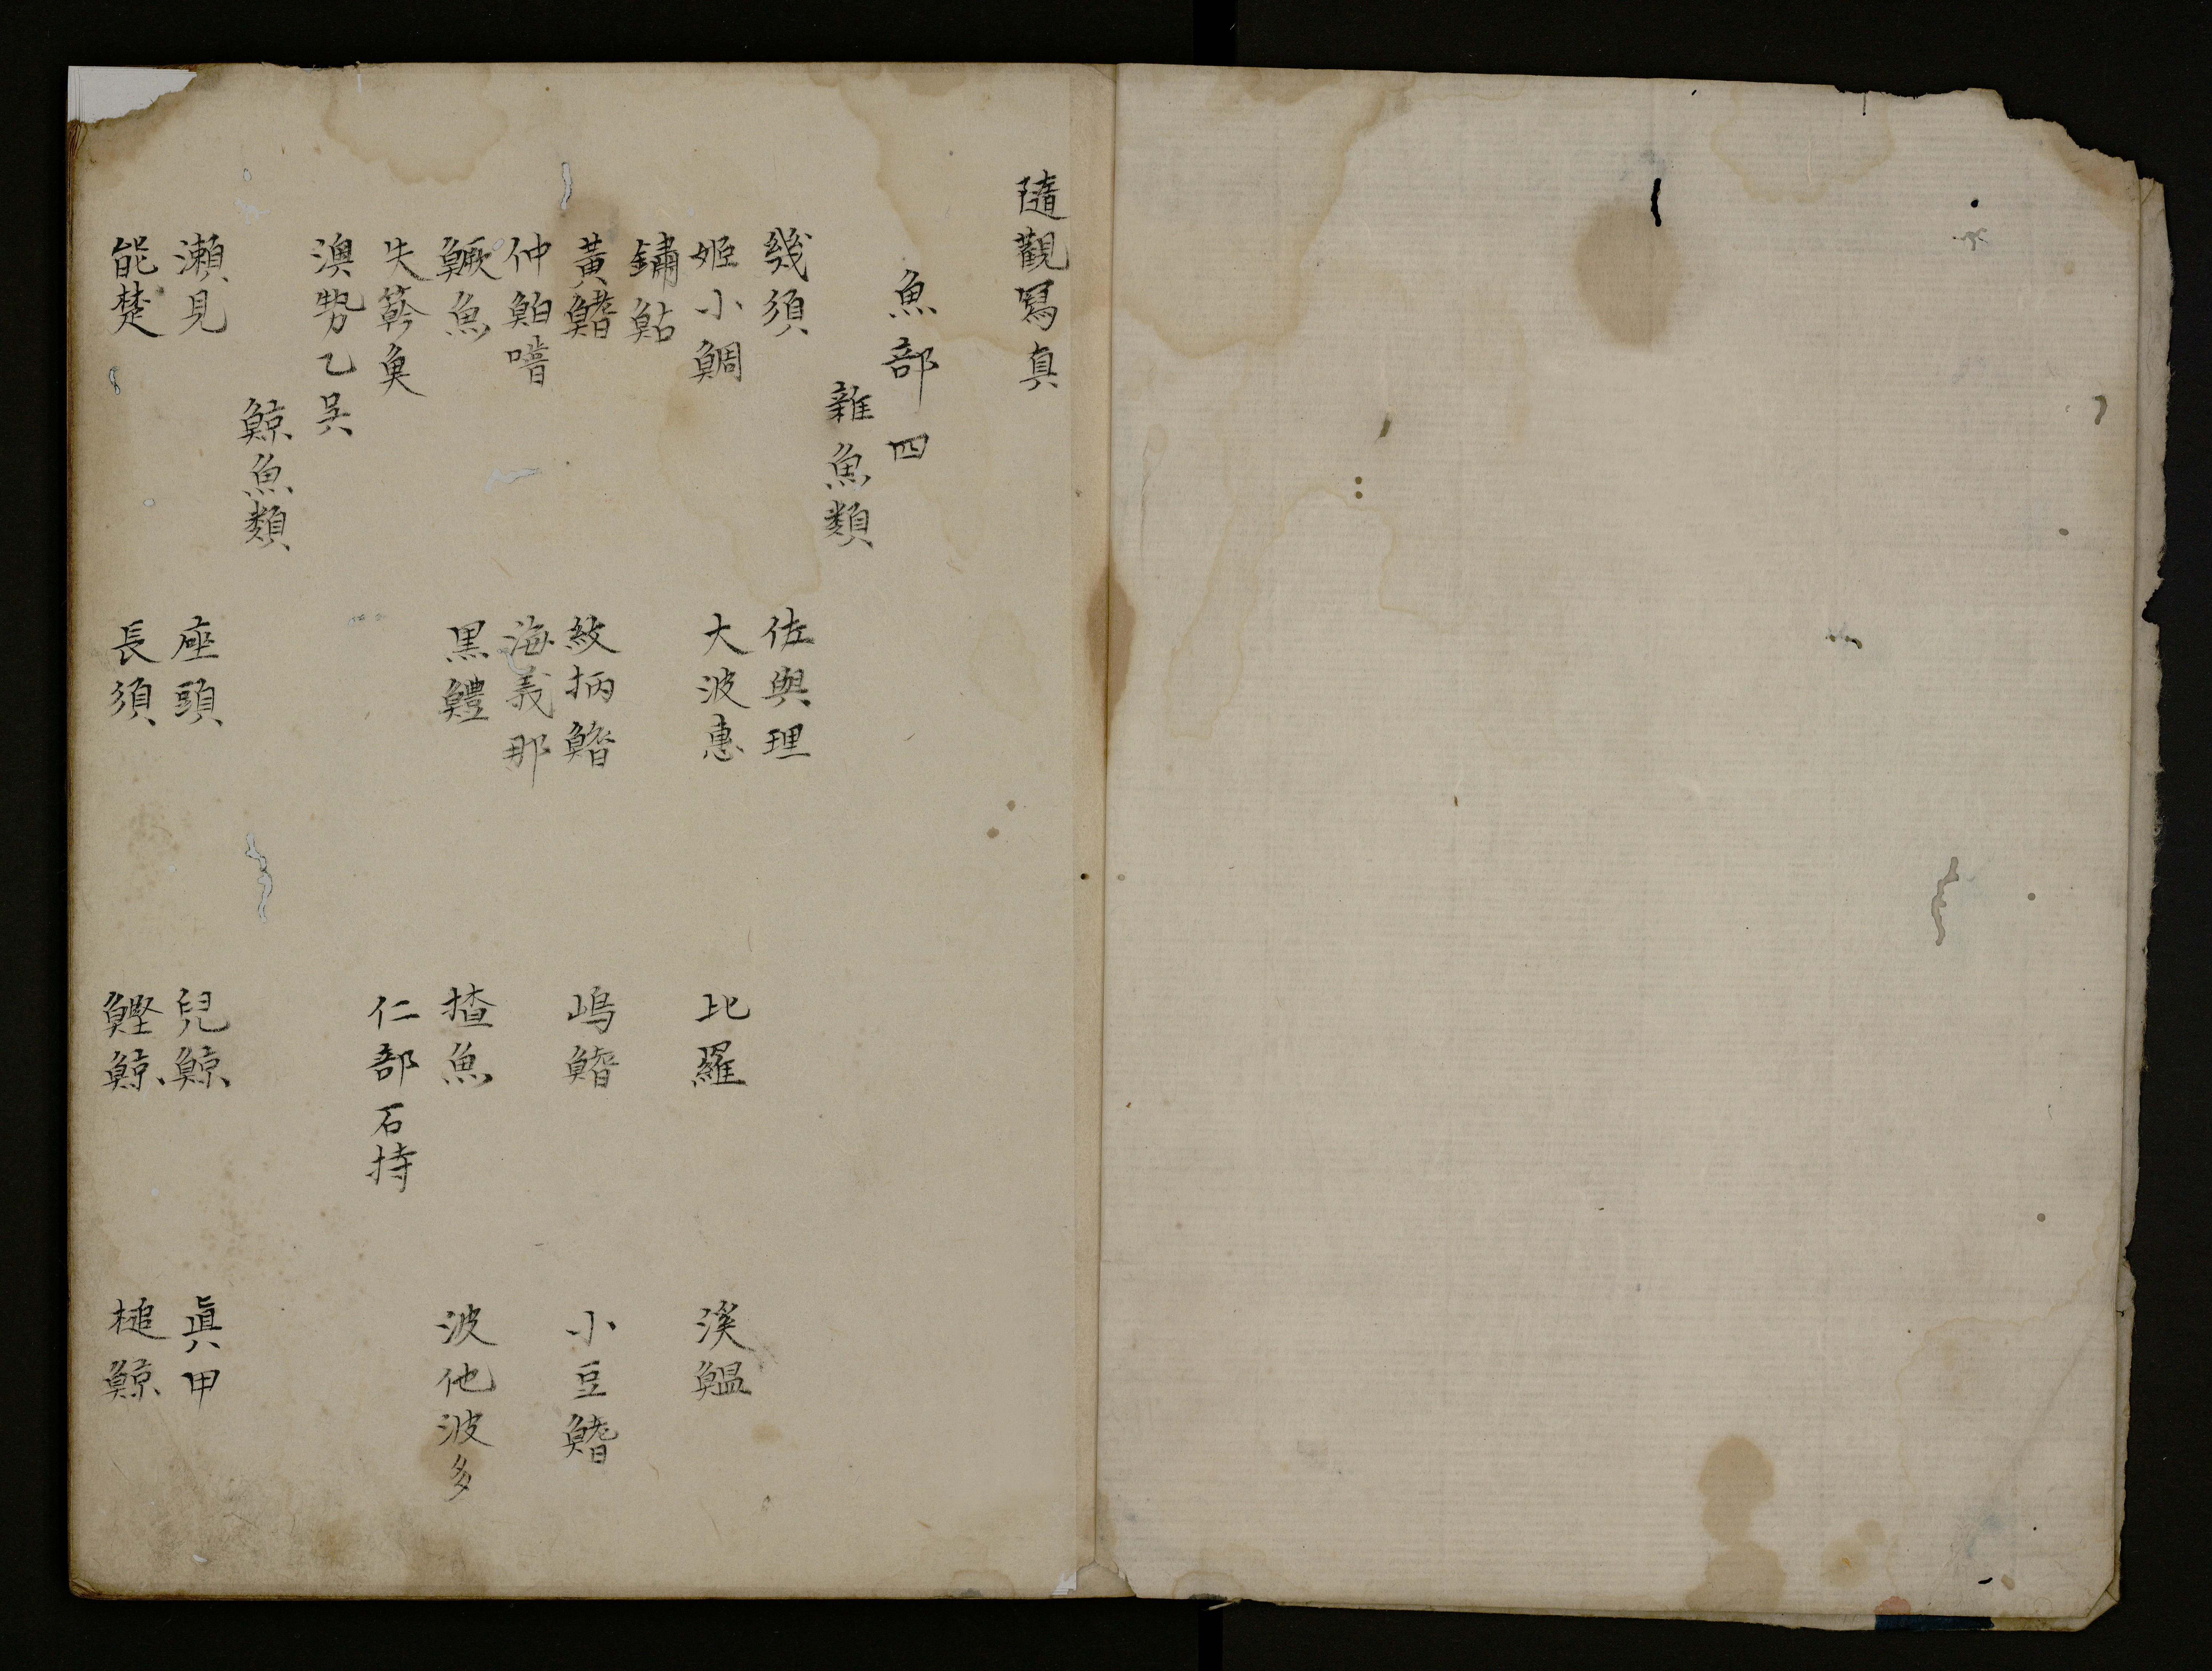 隨觀寫真
魚部四
雜魚類
幾須 佐與理
姬小鯛 大波惠 比羅 溪鰛
鏽鮎
黃鰭 紋抦鰭 嶋鰭 小豆鰭
仲鮊噆 海義那
鱖魚 黒鱧 揸魚 波他波多
失簳魚 仁部 石持
澳㔟乙呉
鯨魚類
瀨見 座頭 兒鯨 眞甲
能楚 長須 鰹鯨 槌鯨